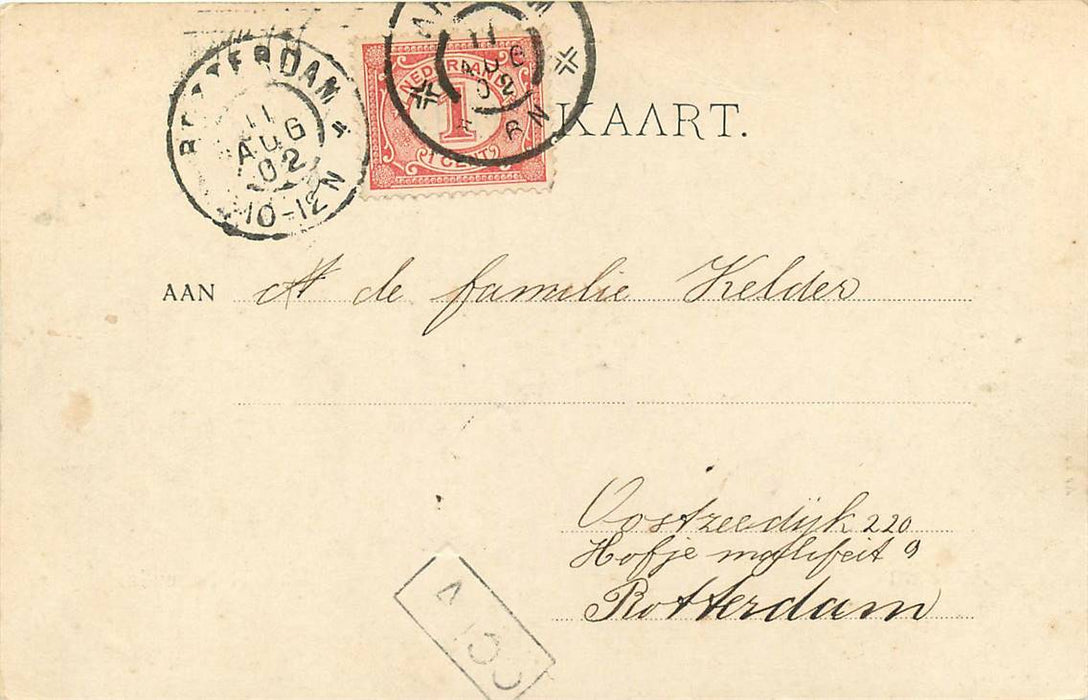 ROTTERDAM
11
AUG
02
10-12N
NEDERLAND
1
1 CENT
11
AUG
02
KAART.
AAN A de familie Kelder
Oostzeedijk 220
Hofje 9
Rotterdam